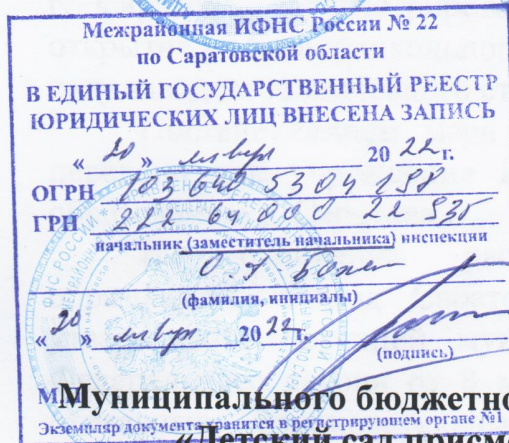 Межрайонная ИФНС России № 22
по Саратовской области
В ЕДИНЫЙ ГОСУДАРСТВЕННЫЙ РЕЕСТР
ЮРИДИЧЕСКИХ ЛИЦ ВНЕСЕНА ЗАПИСЬ
«20» января 2022г.
ОГРН 103 640 5304 198
ГРН 222 64 000 22 935
начальник (заместитель начальника) инспекции
О. У.
(фамилия, инициалы)
«20» января 2022г.
(подпись)
М.
Муниципального бюджетно
Экземпляр документа хранится в регистрирующем органе №1
«Детский сад присм